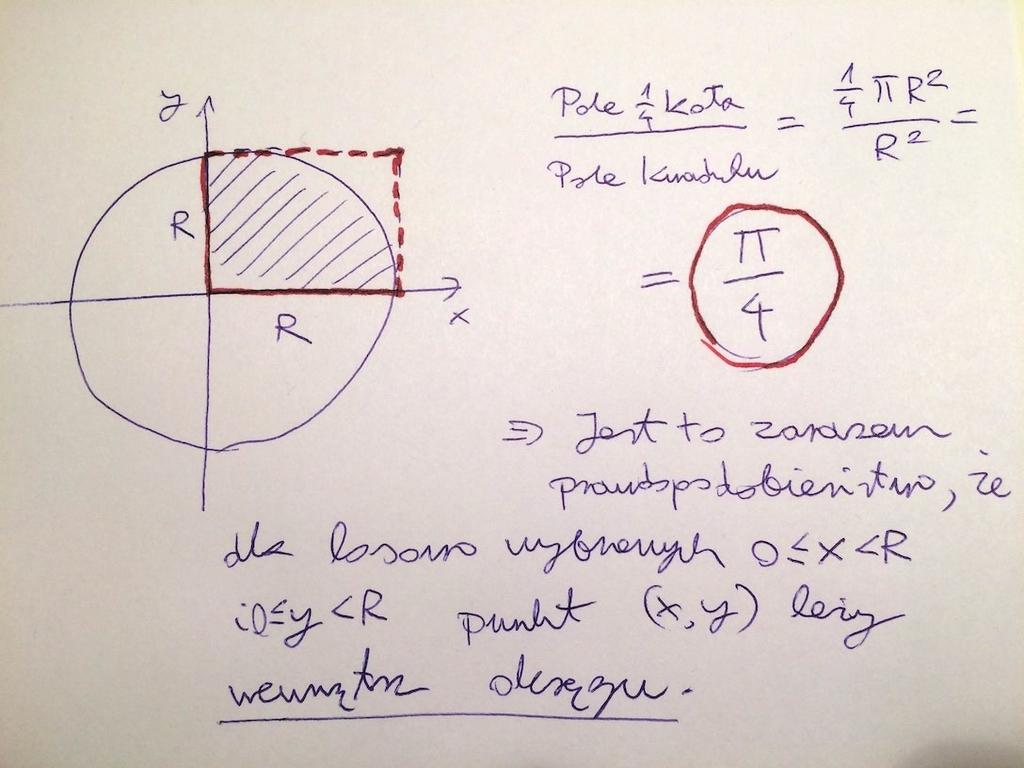 y
R
R
x
Pole 1/4 koła / Pole kwadratu = 1/4 πR² / R² =
= π/4
⇒ Jest to zarazem
prawdopodobieństwo, że
dla losowo wybranych 0 ≤ x < R
i 0 ≤ y < R punkt (x, y) leży
wewnątrz okręgu.